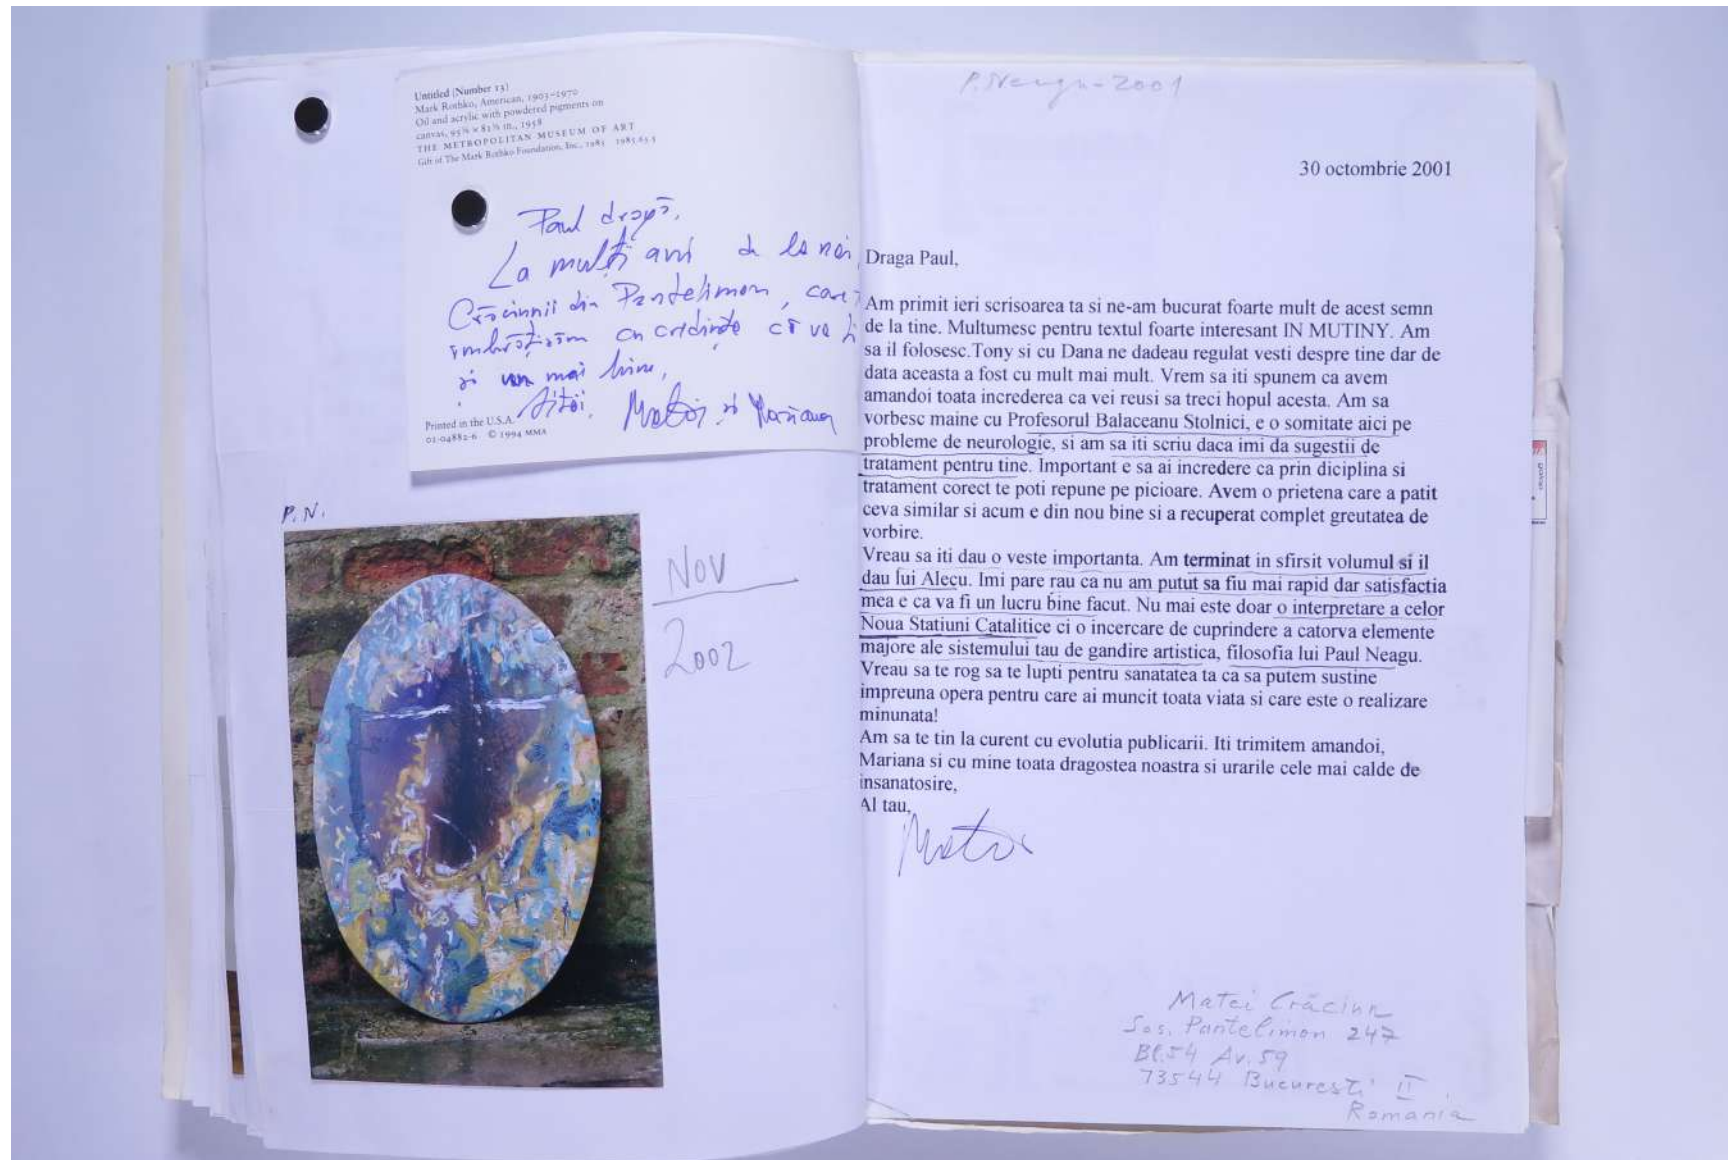 Untitled (Number 13)
Mark Rothko, American, 1903–1970
Oil and acrylic with powdered pigments on
canvas, 95⅜ × 81⅜ in., 1958
THE METROPOLITAN MUSEUM OF ART
Gift of The Mark Rothko Foundation, Inc., 1985 1985.63.5
Paul dragă,
La mulți ani de la noi,
Crăciunii din Pantelimon, care
îmbrățișăm cu credința că va fi
și un mai bine,
Aitoi, Matei și Mariana
Printed in the U.S.A.
01-04882-6 © 1994 MMA
P.N.
NOV
2002
P. Neagu-2001
30 octombrie 2001
Draga Paul,
Am primit ieri scrisoarea ta si ne-am bucurat foarte mult de acest semn
de la tine. Multumesc pentru textul foarte interesant IN MUTINY. Am
sa il folosesc.Tony si cu Dana ne dadeau regulat vesti despre tine dar de
data aceasta a fost cu mult mai mult. Vrem sa iti spunem ca avem
amandoi toata increderea ca vei reusi sa treci hopul acesta. Am sa
vorbesc maine cu Profesorul Balaceanu Stolnici, e o somitate aici pe
probleme de neurologie, si am sa iti scriu daca imi da sugestii de
tratament pentru tine. Important e sa ai incredere ca prin diciplina si
tratament corect te poti repune pe picioare. Avem o prietena care a patit
ceva similar si acum e din nou bine si a recuperat complet greutatea de
vorbire.
Vreau sa iti dau o veste importanta. Am terminat in sfirsit volumul si il
dau lui Alecu. Imi pare rau ca nu am putut sa fiu mai rapid dar satisfactia
mea e ca va fi un lucru bine facut. Nu mai este doar o interpretare a celor
Noua Statiuni Catalitice ci o incercare de cuprindere a catorva elemente
majore ale sistemului tau de gandire artistica, filosofia lui Paul Neagu.
Vreau sa te rog sa te lupti pentru sanatatea ta ca sa putem sustine
impreuna opera pentru care ai muncit toata viata si care este o realizare
minunata!
Am sa te tin la curent cu evolutia publicarii. Iti trimitem amandoi,
Mariana si cu mine toata dragostea noastra si urarile cele mai calde de
insanatosire,
Al tau,
Matei
Matei Crăciun
Sos. Pantelimon 247
Bl.54 Av.59
73544 Bucuresti II
Romania